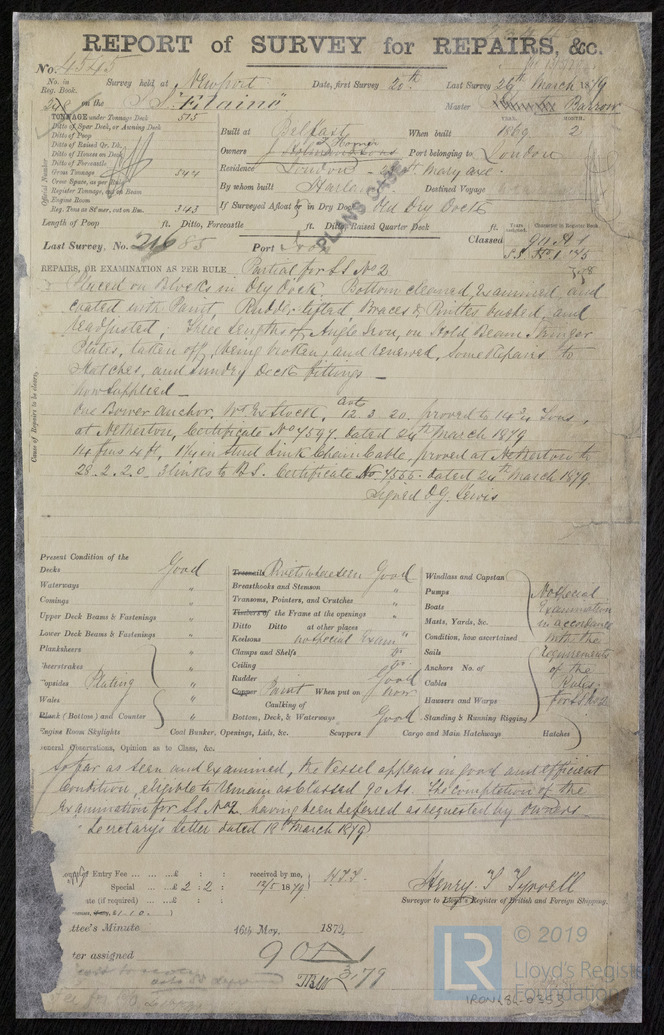 REPORT of SURVEY for REPAIRS, &c.
No. 4545
No. in Reg. Book. Survey held at Newport Date, first Survey 20th Last Survey 26th March 1879
on the S.S. "Elaine" Master Barrow
TONNAGE under Tonnage Deck 515
Ditto of Spar Deck, or Awning Deck
Ditto of Poop
Ditto of Raised Qr. Dk.
Ditto of Houses on Deck
Ditto of Forecastle
Gross Tonnage 544
Crew Space, as per
Register Tonnage, as on Beam
Engine Room
Reg. Tons as St'mer, cut on Bm. 343
Official Number
YEAR. MONTH.
Built at Belfast When built 1869 2
Owners Port belonging to London
Residence London St Mary axe
By whom built Harla Destined Voyage
If Surveyed Afloat or in Dry Dock Old Dry Dock
PLANS CASE
Length of Poop ft. Ditto, Forecastle ft. Ditto, Raised Quarter Deck ft.
Years assigned. Character in Register Book.
Last Survey, No. 21685 Port Classed 90 A1
REPAIRS, OR EXAMINATION AS PER RULE. Partial for S.S. No 2
Placed on Blocks in Dry Dock. Bottom cleaned, Examined, and
coated with Paint, Rudder lifted, Braces & Pintles bushed, and
readjusted, Three Lengths of Angle Iron, on Hold Beam Stringer
Plates, taken off, being broken, and renewed, Some Repairs to
Hatches, and sundry Deck fittings —
Now Supplied —
One Bower Anchor, Wt Ex Stock, 12. 3. 20. proved to 14 Tons,
at Netherton, Certificate No 7597. dated 24th March 1879
Stud Link Chain Cable, proved at Netherton to
28. 2. 2. 0. 3 links to B.S. Certificate No. 7556. dated 24th March 1879.
Signed D. G. Lewis
Cause of Repairs to be clearly,
Present Condition of the
Decks Good
Waterways "
Comings "
Upper Deck Beams & Fastenings "
Lower Deck Beams & Fastenings "
Planksheers "
heerstrakes "
opsides Plating "
Wales "
Plank (Bottom) and Counter "
Treenails Rivets where seen Good
Breasthooks and Stemson "
Transoms, Pointers, and Crutches "
Timbers of the Frame at the openings "
Ditto Ditto at other places
Keelsons no special Exam "
Clamps and Shelfs Do
Ceiling Do
Rudder Good
Copper Paint When put on now
Caulking of
Bottom, Deck, & Waterways Good
Windlass and Capstan
Pumps
Boats
Masts, Yards, &c.
Condition, how ascertained
Sails
Anchors No. of
Cables
Hawsers and Warps
Standing & Running Rigging
No special
Examination
in accordance
with the
requirements
of the
Rules
for SS No 2
ngine Room Skylights Coal Bunker, Openings, Lids, &c. Scuppers Cargo and Main Hatchways Hatches
eneral Observations, Opinion as to Class, &c.
So far as seen and examined, the Vessel appears in good and efficient
Condition, eligible to remain as Classed 90 A1. The completion of the
Examination for S.S. No 2. having been deferred as requested by Owners
Secretary's letter dated 19th March 1879
Entry Fee £ : : received by me, H.T.T.
Special £ 2 : 2 : 12/5 1879
te (if required)
Henry T Tyrrell
Surveyor to Lloyd's Register of British and Foreign Shipping.
ttee's Minute 16th May, 1879,
ter assigned 90 A 1
3,79
© 2019
LR
Lloyd's Register
Foundation
IRON482-0353